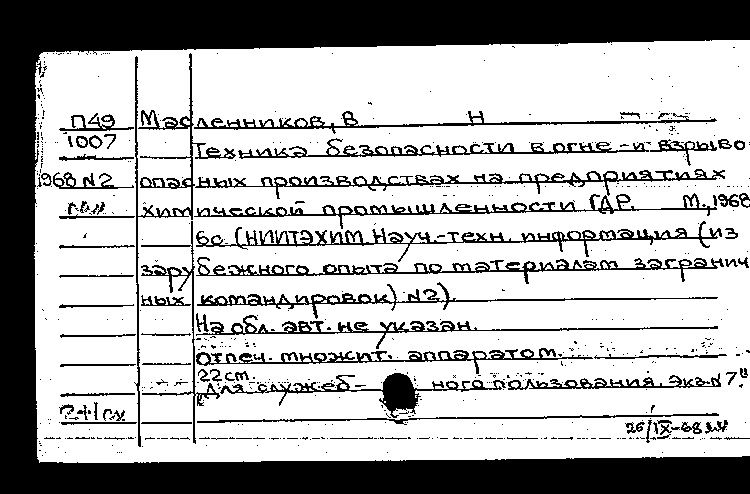 П49 Масленников, В Н
1007 Техника безопасности в огне- и взрыво
1968 N2 опасных производствах на предприятиях
химической промышленности ГДР. М., 1968
6с (НИИТЭХИМ. Науч.-техн. информация (из
зарубежного опыта по материалам загранич
ных командировок) N2).
На обл. авт. не указан.
Отпеч. множит. аппаратом.
22 cm.
„Для служеб- ного пользования. Экз. N 7."
26/IX-68